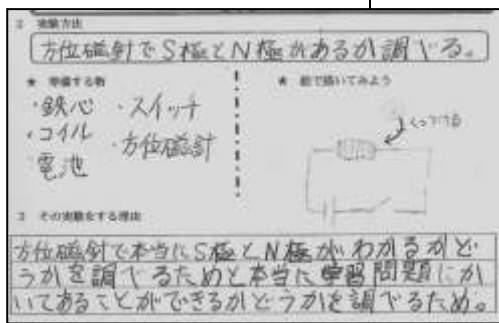 2 実験方法
方位磁針でS極とN極があるか調べる。
★ 準備する物
・鉄心 ・スイッチ
・コイル ・方位磁計
・電池
★ 絵で描いてみよう
くっつける
3 その実験をする理由
方位磁針で本当にS極とN極がわかるかど
うかを調べるためと本当に学習問題にか
いてあることができるかどうかを調べるため。